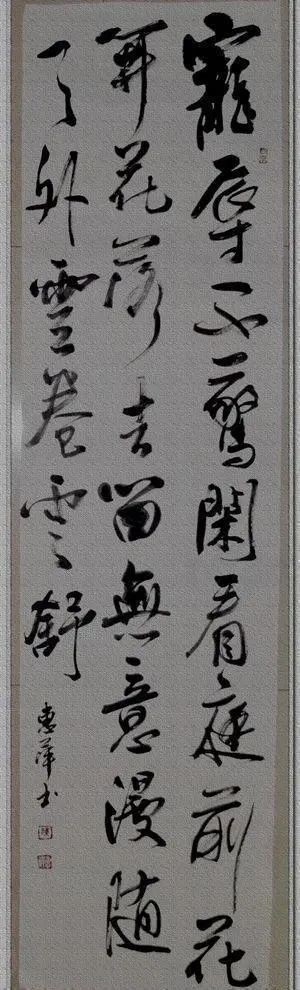 寵辱不驚閑看庭前花
開花落去留無意漫随
天外雲卷雲舒
惠萍书